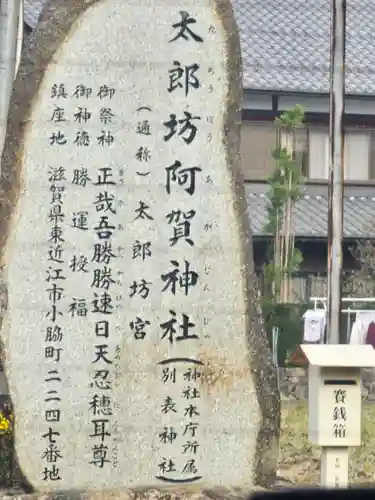 太郎坊阿賀神社
たろうぼうあがじんじゃ
(神社本庁所属
別表神社)
(通称)太郎坊宮
御祭神 正哉吾勝勝速日天忍穂耳尊
御神徳 勝運授福
鎮座地 滋賀県東近江市小脇町二二四七番地
賽銭箱